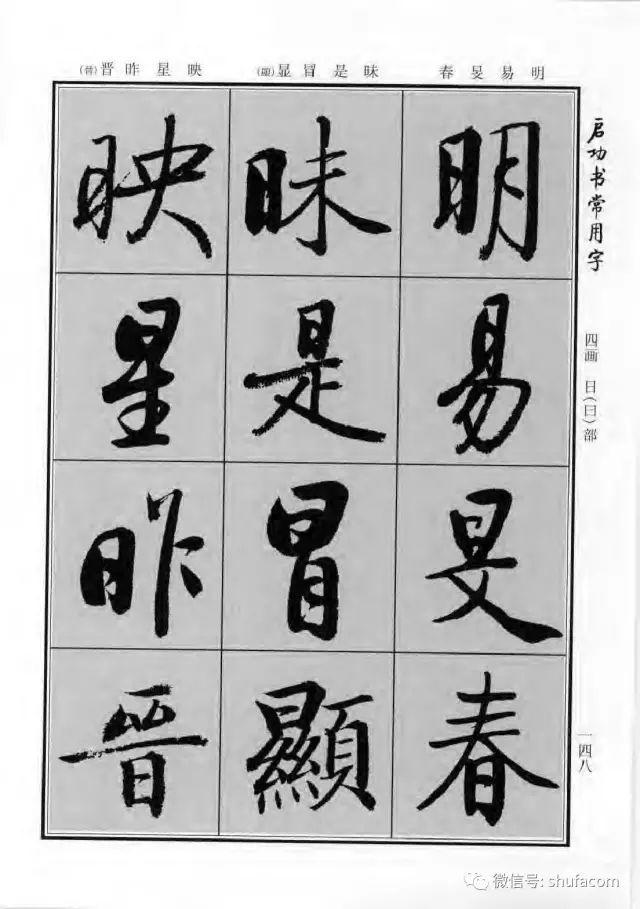 启功书常用字
四画 日(曰)部
一四八
明易旻春
昧是冒显(顯)
映星昨晋(晉)
明
易
旻
春
昧
是
冒
顯
映
星
昨
晉
微信号: shufacom